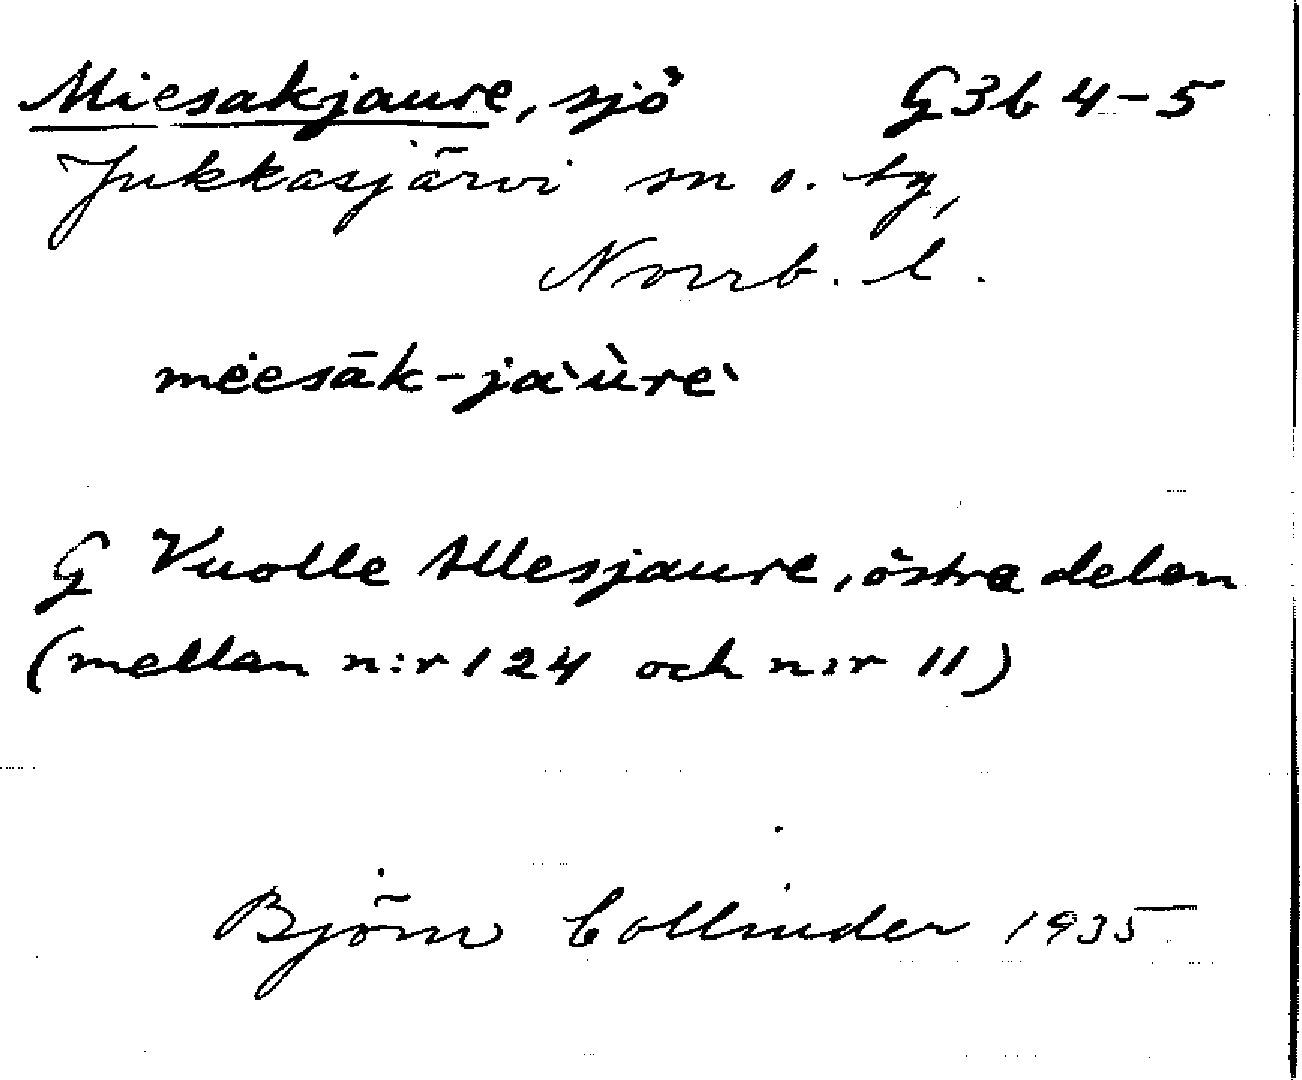 Miesakjaure, sjö G3b 4-5
Jukkasjärvi sn o. by,
Norrb. l.
mėesāk-jaˋùreˋ
G Vuolle Allesjaure, östra delen
(mellan n:r 124 och n:r 11)
Björn Collinder 1935